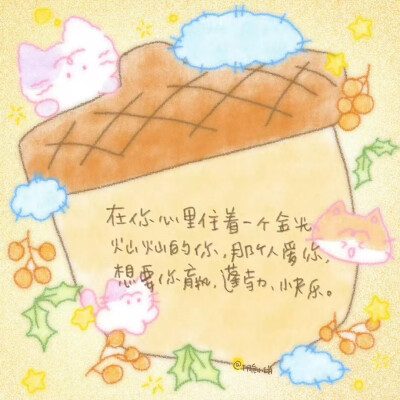 在你心里住着一个金光
灿灿的你,那个人爱你,
想要你赢,蓬勃,快乐。